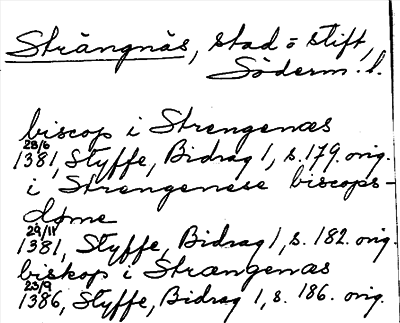 Strängnäs, stad o stift,
Söderm. l.
biscop i Strengenæs
28/6
1381, Styffe, Bidrag 1, s. 179. orig.
i Strengenese biscops-
døme
29/11
1381, Styffe, Bidrag 1, s. 182. orig.
biskop i Strængenæs
23/9
1386, Styffe, Bidrag 1, s. 186. orig.